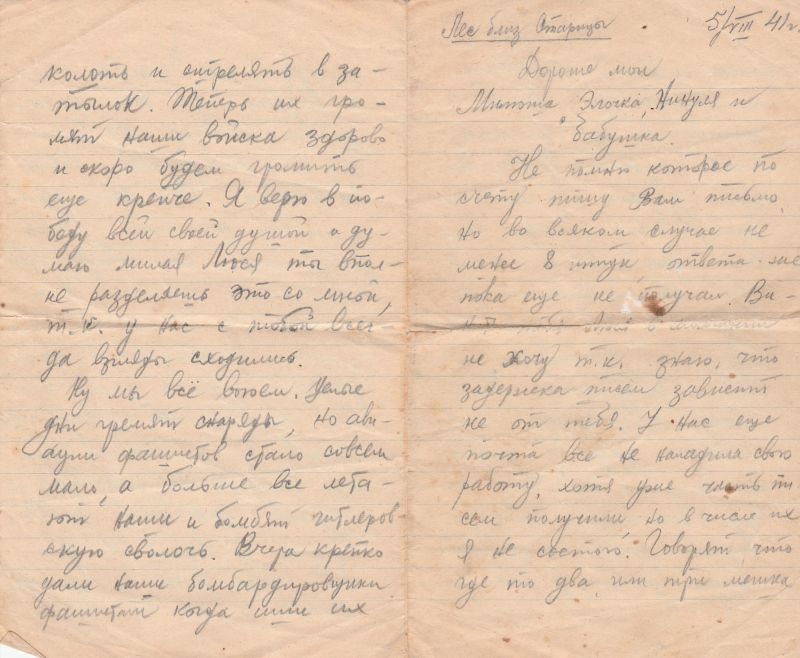 Лес близ Старицы 5/VIII 41г.
Дорогие мои
Милюта Элочка, Нинуля и
бабушка.
Не помню которое по
счету пишу Вам письмо,
но во всяком случае не
менее 8 штук ответа же
пока еще не получал. Ви-
не хочу т.к. знаю, что
задержка писем зависит
не от тебя. У нас еще
почта все не наладила свою
работу, хотя уже часть пи-
сем получили но в числе их
я не состою. Говорят что
где то два или три мешка
колоть и стрелять в за-
тылок. Теперь их гро-
мят наши войска здорово
и скоро будем громить
еще крепче. Я верю в по-
беду всей своей душой и ду-
маю милая Люся ты впол-
не разделяешь это со мной,
т.к. у нас с тобой всег-
да взгляды сходились.
Ну мы всё воюем. Целые
дни гремят снаряды, но ави-
ации фашистов стало совсем
мало, а больше все лета-
ют наши и бомбят гитлеров-
скую сволочь. Вчера крепко
дали наши бомбардировщики
фашистам когда шли их